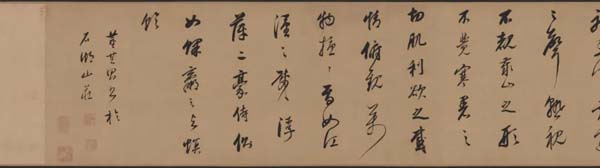 之聲熟視
不覩泰山之形
不覺寒暑之
切肌利欲之感
情俯觀萬
物擾々焉如江
漢之載浮
萍二豪侍側
如蜾蠃之與螟
蛉
董其昌書於
石湖山莊